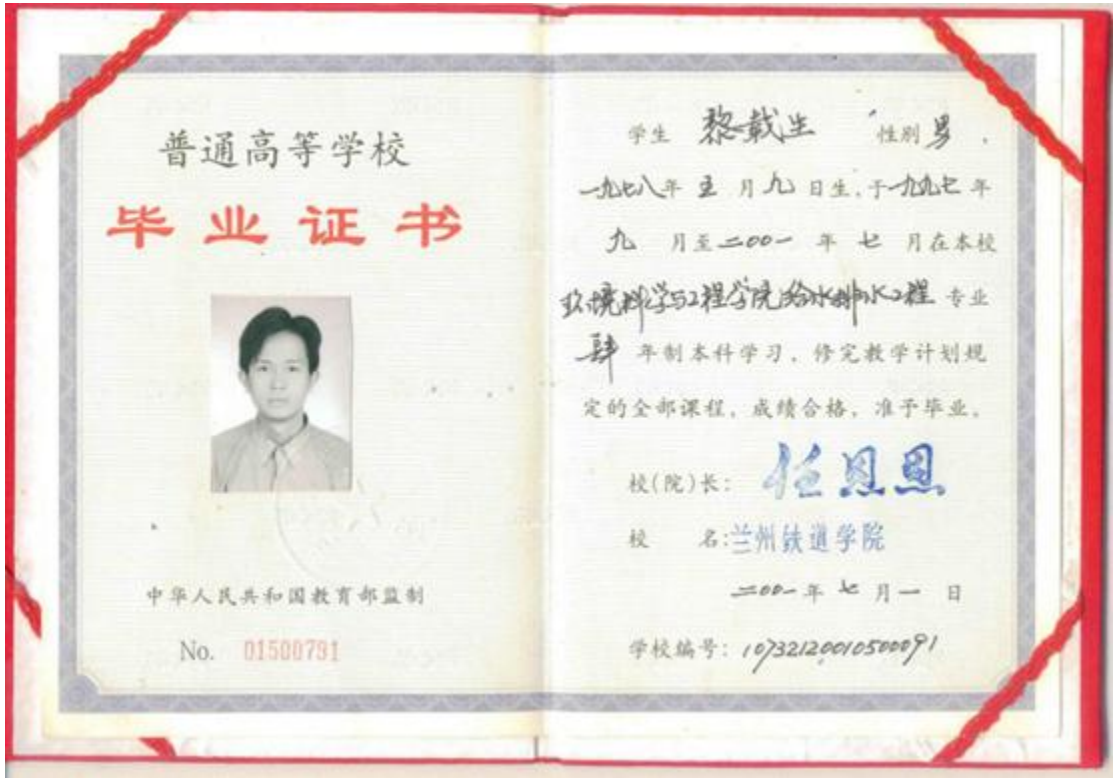 普通高等学校
毕业证书
中华人民共和国教育部监制
No. 01500791
学生 黎载生 性别 男 ,
一九七八年 五 月 九 日生,于一九九七 年
九 月至 二00一 年 七 月在本校
环境科学与工程学院给水排水工程 专业
肆 年制本科学习,修完教学计划规
定的全部课程,成绩合格,准予毕业。
校(院)长: 任恩恩
校 名:兰州铁道学院
二00一 年 七 月 一 日
学校编号: 107321200105000791